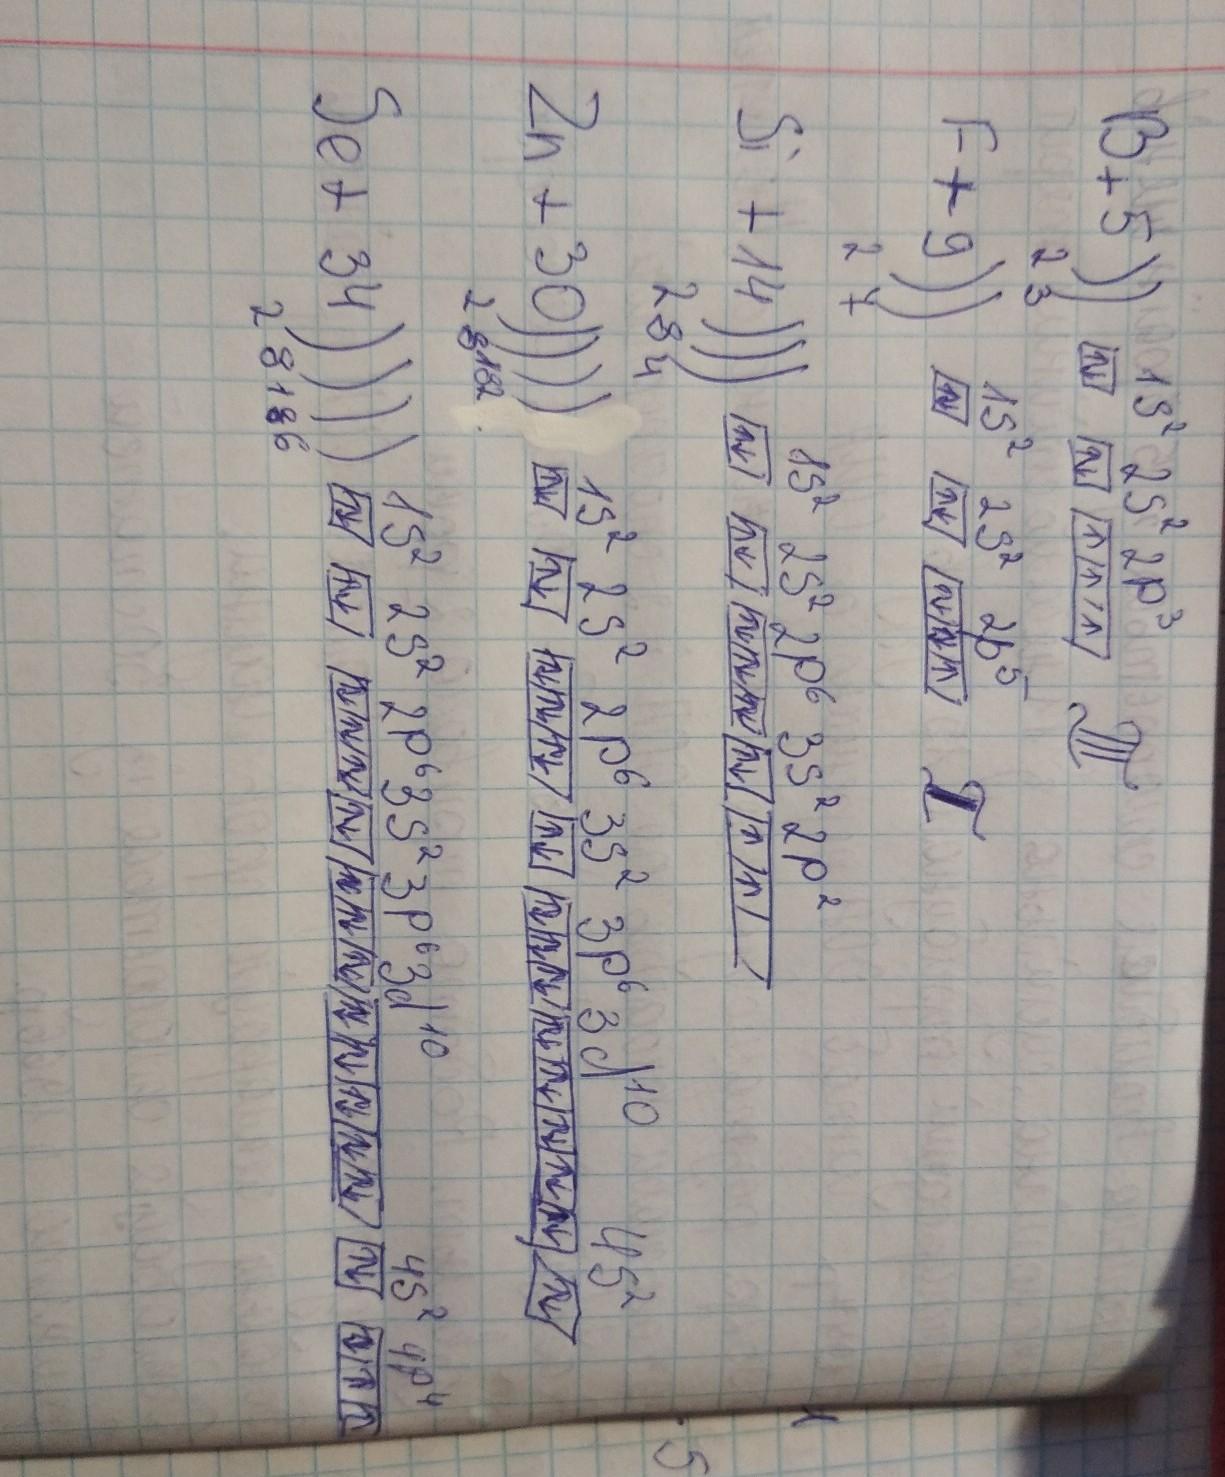 B+5)) 1S² 2S² 2p³ III
2 3
F+9)) 1S² 2S² 2p⁵ I
2 7
Si+14))) 1S² 2S² 2p⁶ 3S² 2p²
2 8 4
Zn+30)))) 1S² 2S² 2p⁶ 3S² 3p⁶ 3d¹⁰ 4S²
2 8 18 2
Se+34)))) 1S² 2S² 2p⁶ 3S² 3p⁶ 3d¹⁰ 4S² 4p⁴
2 8 18 6
5